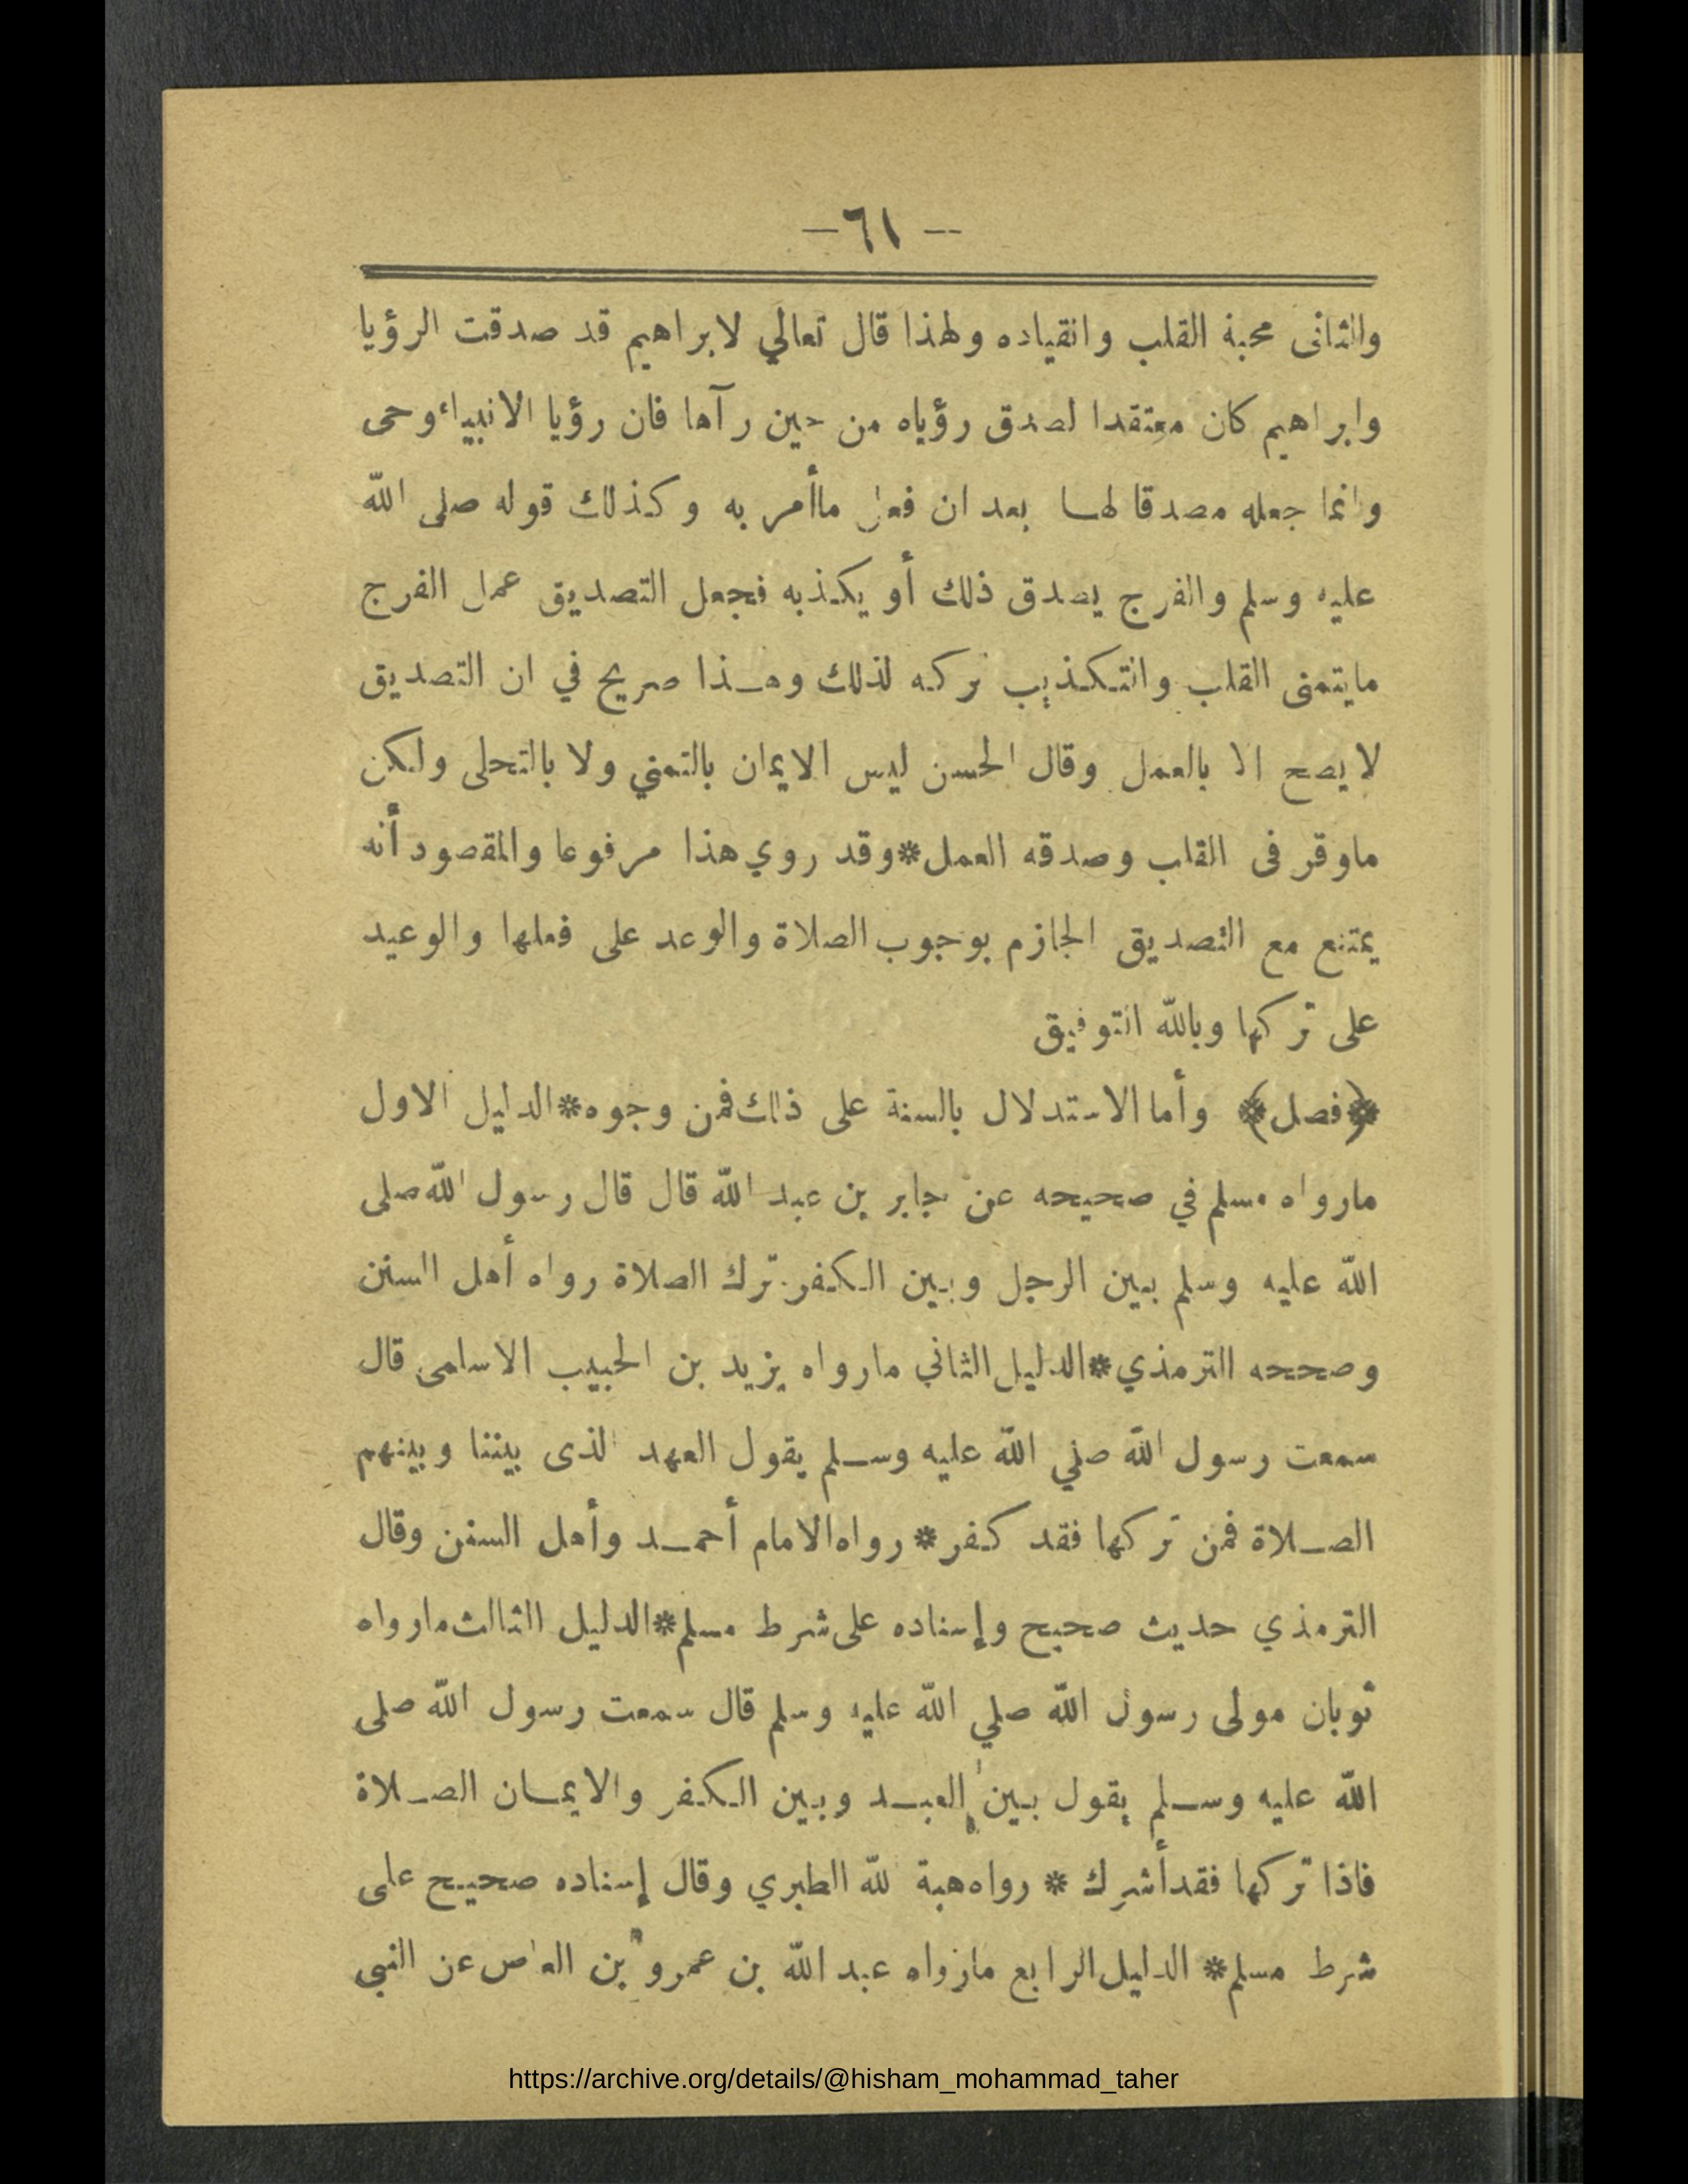 -- ٦١ –
والثانى محبة القلب وانقياده ولهذا قال تعالي لابراهيم قد صدقت الرؤيا
وابراهيم كان معتقدا لصدق رؤياه من حين رآها فان رؤيا الانبياء وحى
وانما جعله مصدقا لهـا بعد ان فعل ماأمر به وكذلك قوله صلى الله
عليه وسلم والفرج يصدق ذلك أو يكذبه فجعل التصديق عمل الفرج
مايتمنى القلب والتكذيب تركه لذلك وهـذا صريح في ان التصديق
لايصح الا بالعمل وقال الحسن ليس الايمان بالتمني ولا بالتحلى ولكن
ماوقر فى القلب وصدقه العمل*وقد روي هذا مرفوعا والمقصود أنه
يمتنع مع التصديق الجازم بوجوب الصلاة والوعد على فعلها والوعيد
على تركها وبالله التوفيق
﴿فصل﴾ وأما الاستدلال بالسنة على ذلك فمن وجوه*الدليل الاول
مارواه مسلم في صحيحه عن جابر بن عبد الله قال قال رسول الله صلى
الله عليه وسلم بين الرجل وبين الكفر ترك الصلاة رواه أهل السنن
وصححه الترمذي*الدليل الثاني مارواه يزيد بن الحبيب الاسلمى قال
سمعت رسول الله صلي الله عليه وسـلم يقول العهد الذى بيننا وبينهم
الصـلاة فمن تركها فقد كفر* رواه الامام أحمـد وأهل السنن وقال
الترمذي حديث صحيح وإسناده على شرط مسلم*الدليل الثالث مارواه
ثوبان مولى رسول الله صلي الله عليه وسلم قال سمعت رسول الله صلى
الله عليه وسـلم يقول بين العبـد وبين الكفر والايمـان الصـلاة
فاذا تركها فقد أشرك * رواه هبة الله الطبري وقال إسناده صحيح على
شرط مسلم* الدليل الرابع مارواه عبد الله بن عمرو بن العاص عن النبى
https://archive.org/details/@hisham_mohammad_taher